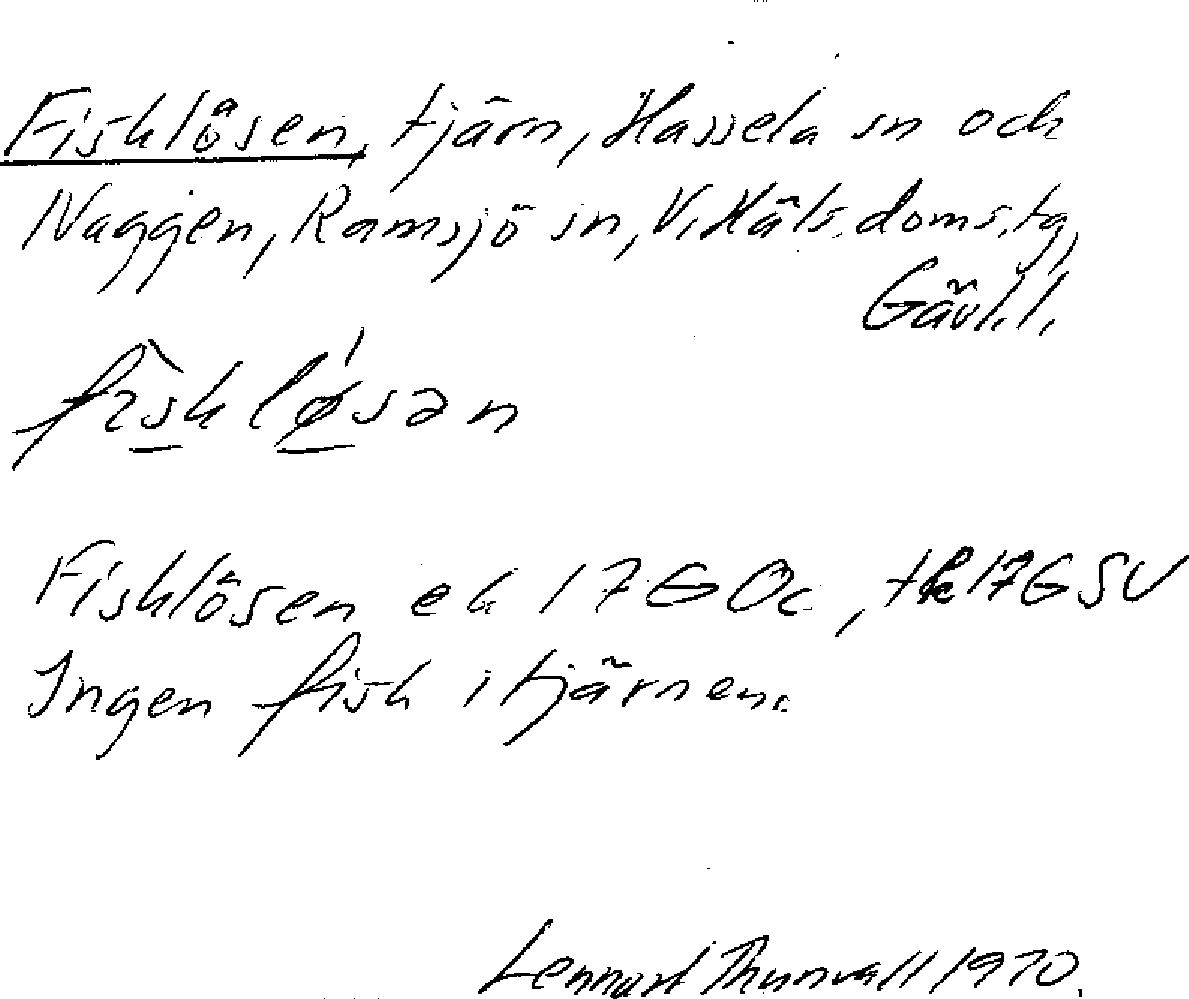 Fisklösen, tjärn, Hassela sn och
Naggen, Ramsjö sn, V. Häls. doms. tg,
Gävl. l.
fìsklǿsən
Fisklösen ek 17G 0c, tk 17G SV
Ingen fisk i tjärnen.
Lennart Thunvall 1970.